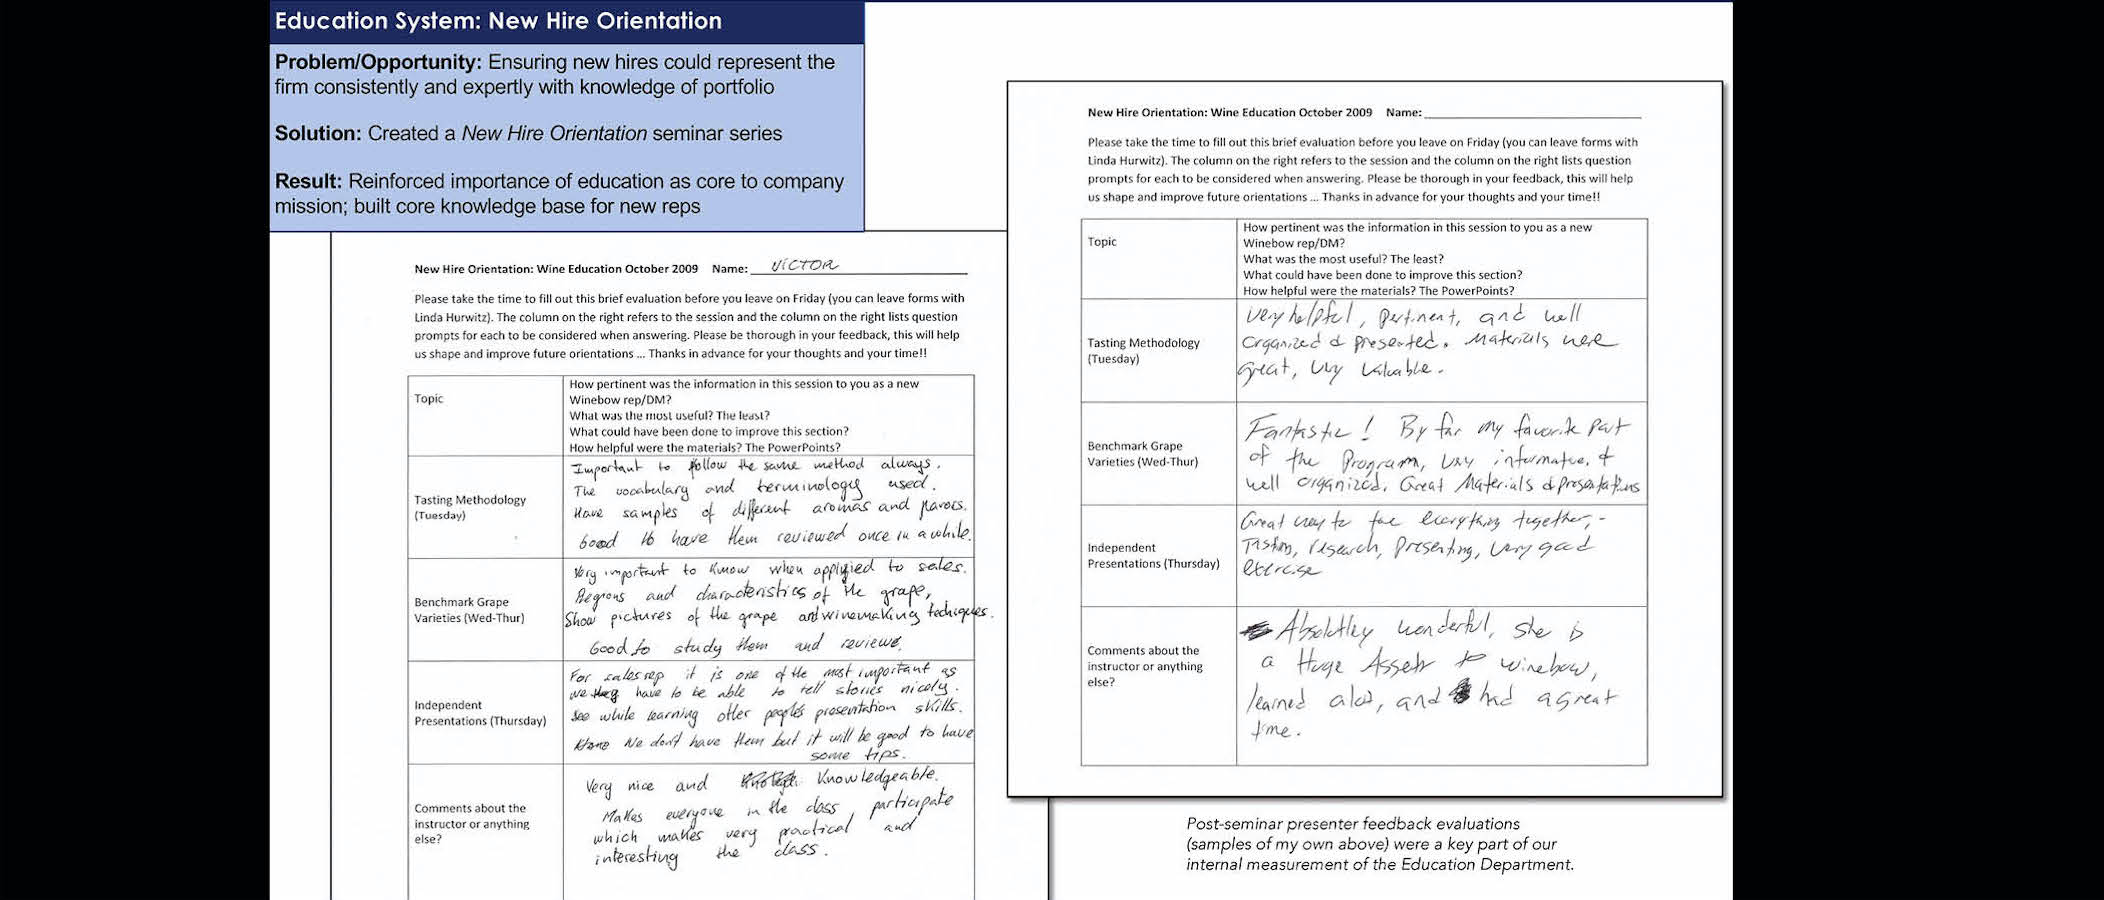 Education System: New Hire Orientation
Problem/Opportunity: Ensuring new hires could represent the
firm consistently and expertly with knowledge of portfolio
Solution: Created a New Hire Orientation seminar series
Result: Reinforced importance of education as core to company
mission; built core knowledge base for new reps
New Hire Orientation: Wine Education October 2009 Name: VICTOR
Please take the time to fill out this brief evaluation before you leave on Friday (you can leave forms with
Linda Hurwitz). The column on the right refers to the session and the column on the right lists question
prompts for each to be considered when answering. Please be thorough in your feedback, this will help
us shape and improve future orientations ... Thanks in advance for your thoughts and your time!!
Topic
How pertinent was the information in this session to you as a new
Winebow rep/DM?
What was the most useful? The least?
What could have been done to improve this section?
How helpful were the materials? The PowerPoints?
Tasting Methodology
(Tuesday)
Important to follow the same method always.
The vocabulary and terminology used.
Have samples of different aromas and flavors.
Good to have them reviewed once in a while.
Benchmark Grape
Varieties (Wed-Thur)
Very important to know when applyied to sales.
Regions and characteristics of the grape,
Show pictures of the grape and winemaking techiques.
Good to study them and reviewe.
Independent
Presentations (Thursday)
For sales rep it is one of the most important as
we have to be able to tell stories nicely.
See while learning other people's presentation skills.
We don't have them but it will be good to have
some tips.
Comments about the
instructor or anything
else?
Very nice and Knowledgeable.
Makes everyone in the class participate
which makes very practical and
interesting the class.
New Hire Orientation: Wine Education October 2009 Name:
Please take the time to fill out this brief evaluation before you leave on Friday (you can leave forms with
Linda Hurwitz). The column on the right refers to the session and the column on the right lists question
prompts for each to be considered when answering. Please be thorough in your feedback, this will help
us shape and improve future orientations ... Thanks in advance for your thoughts and your time!!
Topic
How pertinent was the information in this session to you as a new
Winebow rep/DM?
What was the most useful? The least?
What could have been done to improve this section?
How helpful were the materials? The PowerPoints?
Tasting Methodology
(Tuesday)
Very helpful, pertinent, and well
organized & presented. Materials were
great, very valuable.
Benchmark Grape
Varieties (Wed-Thur)
Fantastic! By far my favorite part
of the Program, very informative, &
well organized. Great Materials & presentations
Independent
Presentations (Thursday)
Great way to everything together, -
Tasting, research, presenting, very good
exercise
Comments about the
instructor or anything
else?
Absolutley wonderful, she is
a Huge Asset to winebow,
learned alot, and had a great
time.
Post-seminar presenter feedback evaluations
(samples of my own above) were a key part of our
internal measurement of the Education Department.